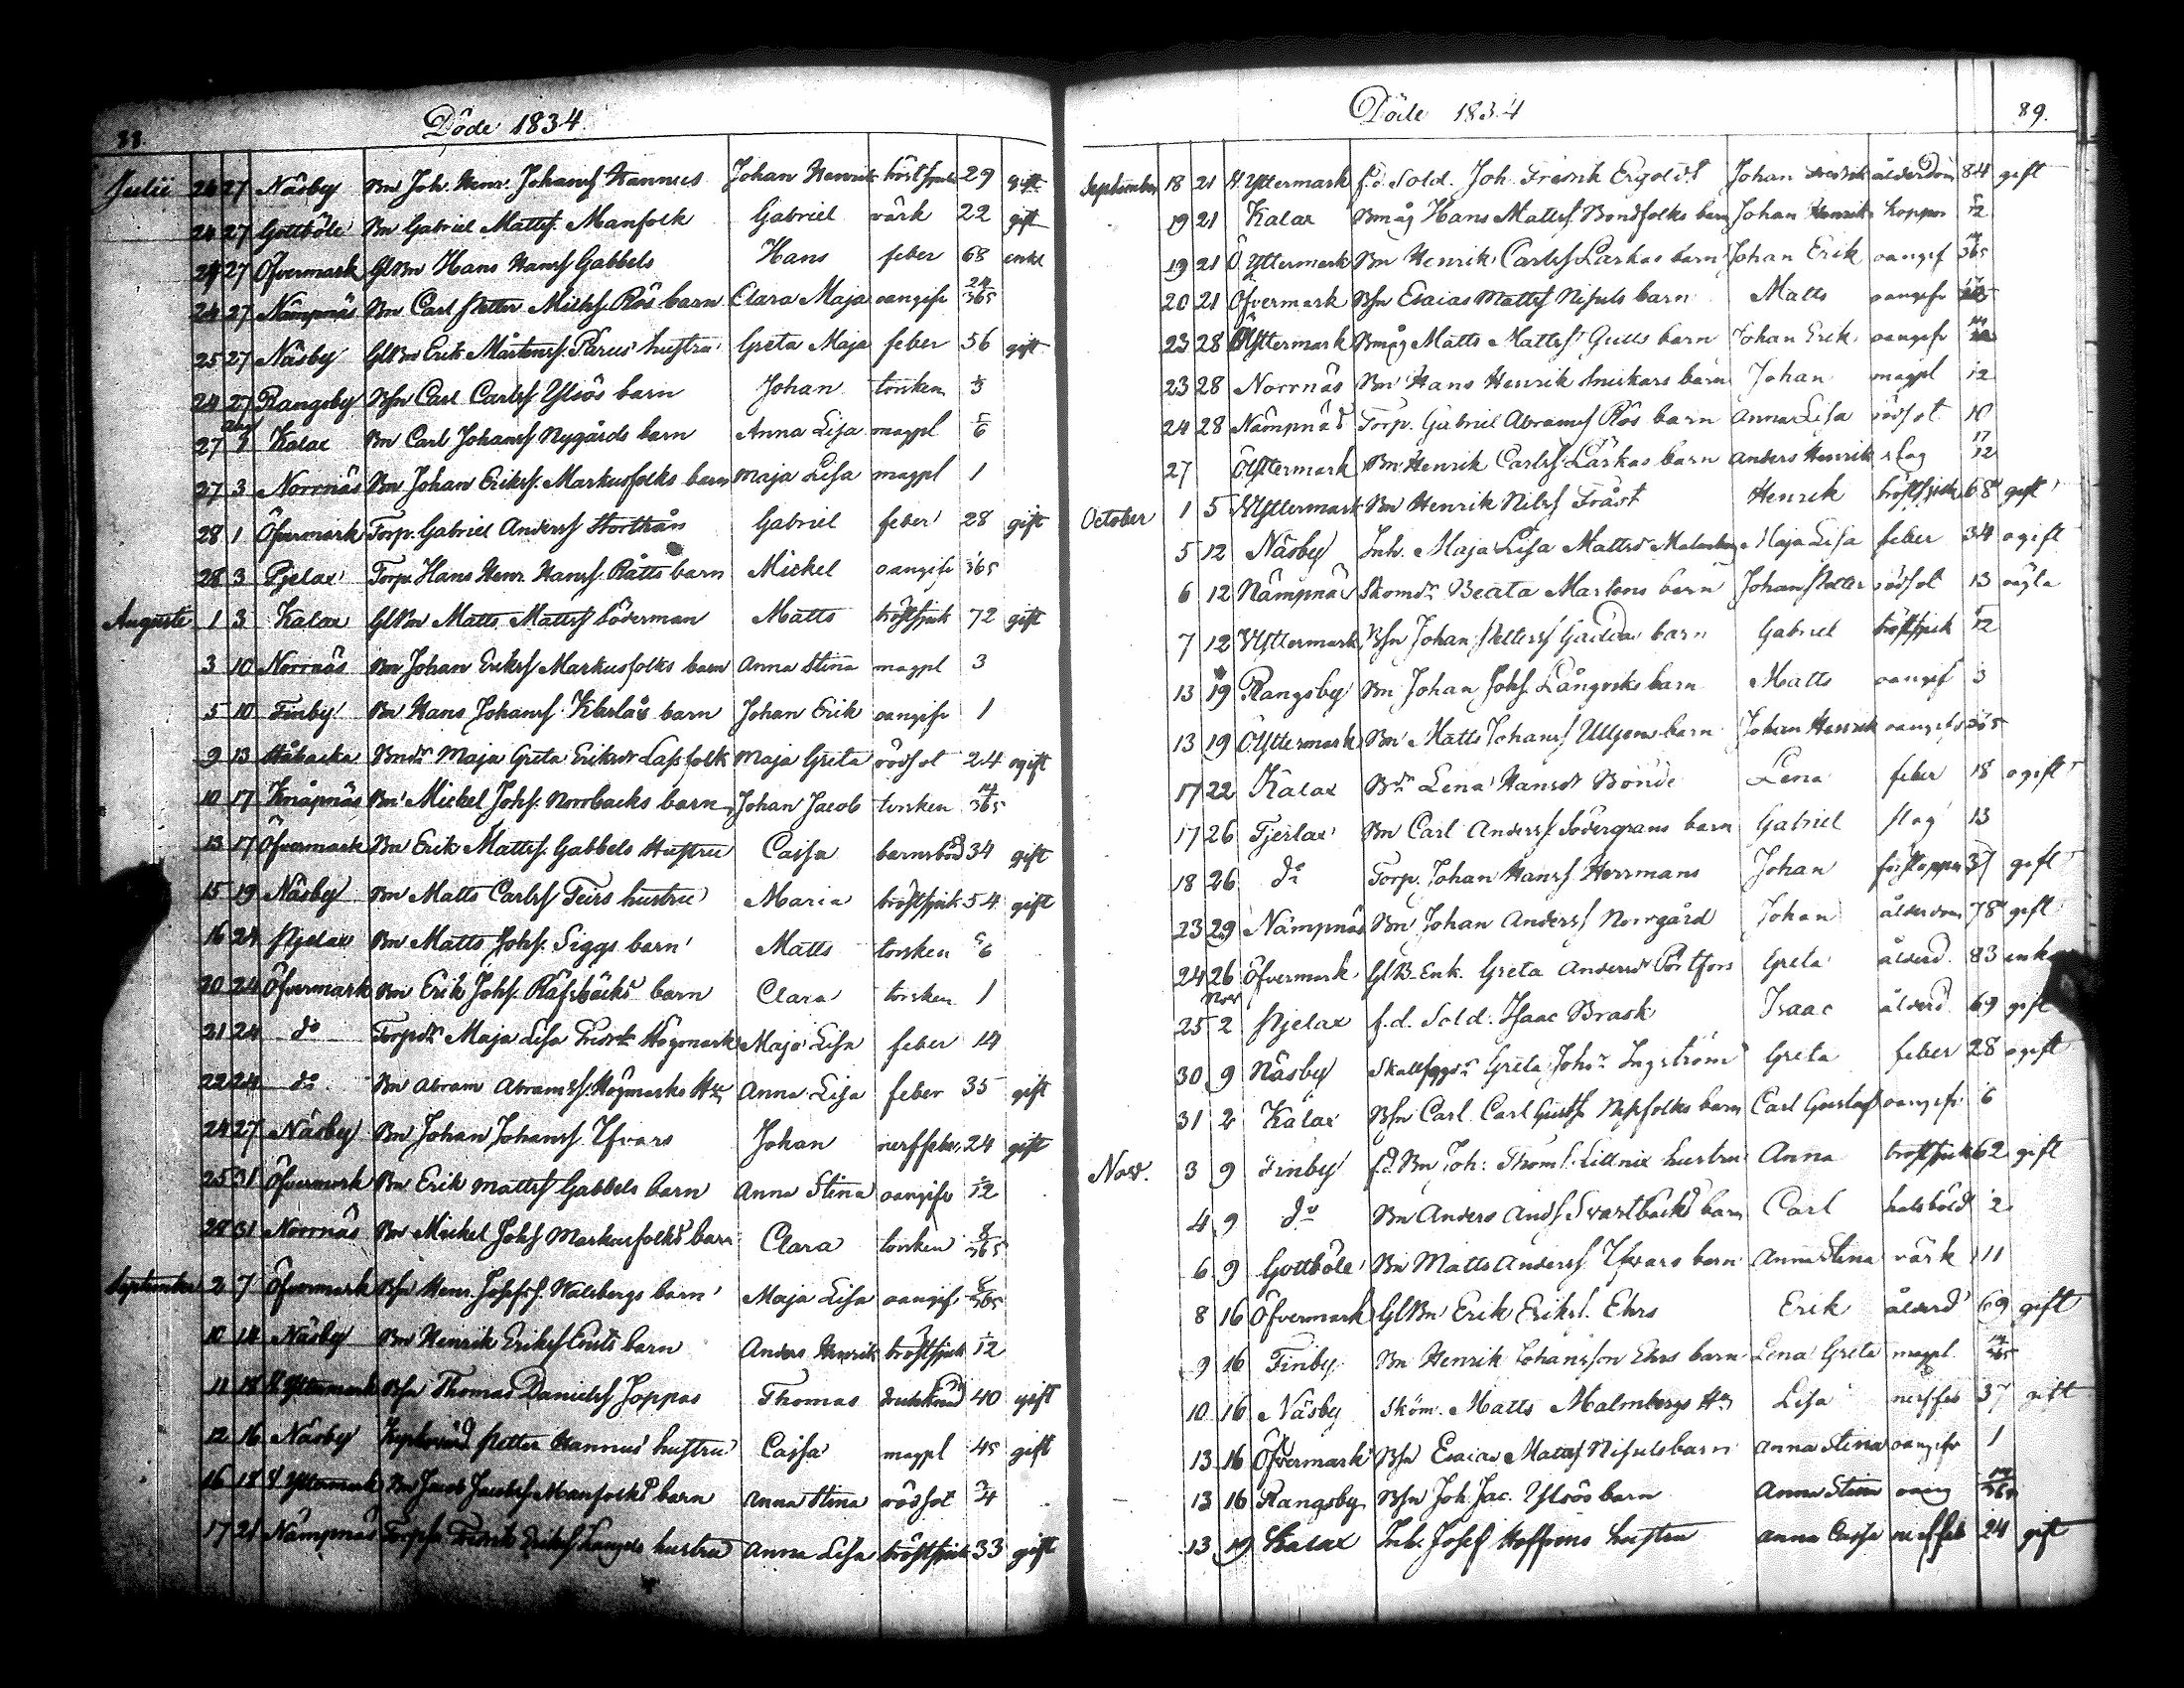 88.
Döde 1834.
Julii 24 27 Näsby Bn Joh. Henr. Johanss Hannus Johan Henrik bröstsjuk 29 gift
24 27 Gottböle Bn Gabriel Mattss. Manfolk Gabriel värk 22 gift
24 27 Öfvermark GlBn Hans Hanss Gabbels Hans feber 68 enkl
24 27 Nämpnäs Bn Carl Petter Mickss Rös barn Clara Maja oangifv 24/365
25 27 Näsby GlBn Erik Mårtenss. hustru Greta Maja feber 56 gift
24 27 Rangsby Bsn Carl Carlss Ylsiös barn Johan torsken
27 Aug 1 Kalax Bn Carl Johanss Nygårds barn Anna Lisa magpl
27 3 Norrnäs Bn Johan Erikss. Markusfolks barn Maja Lisa magpl 1
28 1 Öfvermark Torp. Gabriel Anderss Storthån Gabriel feber 28 gift
28 3 Pjelax Torp. Hans Henr. Hanss. Rätts barn Mickel oangifv
Augusti 1 3 Kalax GlBn Matts Mattss Söderman Matts bröstsjuk 72 gift
3 10 Norrnäs Bn Johan Erikss Markusfolks barn Anna Stina magpl 3
5 10 Finby Bn Hans Johanss. Klarlås barn Johan Erik oangifv 1
9 13 Håbacka Bndr Maja Greta Eriksdr Lassfolk Maja Greta rödsot 24 ogift
10 17 Knåpnäs Bn Mickel Johss. Norrbacks barn Johan Jacob torsken 14/365
13 17 Öfvermark Bn Erik Mattss. Gabbels Hustru Caisa barnsbörd 34 gift
15 19 Näsby Bn Matts Carlss Teirs hustru Maria bröstsjuk 54 gift
16 24 Pjelax Bn Matts Johss. Siggs barn Matts torsken
20 24 Öfvermark Bn Erik Johss. Räfsbäcks barn Clara torsken 1
21 24 do Torpdr Maja Lisa Högmark Maja Lisa feber 14
22 24 do Bn Abram Abramss. Högmarks Hu Anna Lisa feber 35 gift
24 27 Näsby Bn Johan Johanss. Ifvars Johan nerffeber 24 gift
25 31 Öfvermark Bn Erik Mattss Gabbels barn Anna Stina oangifv
28 31 Norrnäs Bn Mickel Johss Markusfolks barn Clara torsken 8/365
September 2 7 Öfvermark Bsn Henr. Josefss. Walsbergs barn Maja Lisa oangifv
10 14 Näsby Bn Henrik Erikss barn Anders Henrik bröstsjuk
11 18 Y. Yttermark Bsn Thomas Danielss Joppas Thomas 40 gift
12 16 Näsby Petter Hannus hustru Caisa magpl 45 gift
16 18 Y. Yttermark Bn Jacob Jacobss Manfolks barn Anna Stina rödsot 3/4
17 21 Nämpnäs Erikss. hustru Anna Lisa bröstsjuk 33 gift
Döde 1834
89.
September 18 21 Y. Yttermark f.d. Sold. Joh. Fredrik Ergoldt Johan Fredrik ålderdom 84 gift
19 21 Kalax Bmåg Hans Mattss Bondfolks barn Johan Henrik koppor
19 21 Ö Yttermark Bn Henrik Carlss Lärkas barn Johan Erik oangif
20 21 Öfvermark Bsn Esaias Mattss Nisuls barn Matts oangifv
23 28 Ö Yttermark Bmåg Matts Mattss Gulls barn Johan Erik oangifv
23 28 Norrnäs Bn Hans Henrik Snickars barn Johan magpl 12
24 28 Nämpnäs Torp. Gabriel Abramss Rös barn Anna Lisa rödsot 10
27 Ö Yttermark Bn Henrik Carlss Lärkas barn Anders Henrik slag
October 1 5 Y Yttermark Bn Henrik Nilss Fråst Henrik bröstsjuk 68 gift
5 12 Näsby Inh. Maja Lisa Mattsdr Malmberg Maja Lisa feber 34 ogift
6 12 Nämpnäs Skomdr Beata Martens barn Johan Petter rödsot 13 oägta
7 12 Y Yttermark Bsn Johan Petterss Gäddas barn Gabriel bröstsjuk
13 19 Rangsby Bn Johan Johss. Långviks barn Matts oangif 3
13 19 Ö Yttermark Bn Matts Johanss Ullgens barn Johan Henrik oangifv
17 22 Kalax Bdr Lena Hansdr Bonde Lena feber 18 ogift
17 26 Tjerlax Bn Carl Anderss. Södergrans barn Gabriel slag 13
18 26 do Torp. Johan Hanss. Herrmans Johan förstoppn 37 gift
23 29 Nämpnäs Bn Johan Anderss Norrgård Johan ålderdom 78 gift
24 26 Öfvermark GlB. Enk. Greta Andersdr Portfors Greta ålderd. 83 enka
25 Nov 2 Pjelax f.d. Sold. Isaac Brask Isaac ålderd. 69 gift
30 9 Näsby Greta Johsdr Ingström Greta feber 28 ogift
31 2 Kalax Bsn Carl Carl Gustfs Nissfolks barn Carl Gustaf oangifv 6
Nov. 3 9 Finby f.d. Bn Joh. Thoms. Lillnix hustru Anna bröstsjuk 62 gift
4 9 do Bn Anders Andss Svartbäcks barn Carl halsböld 2
6 9 Gottböle Bn Matts Anderss Ifvars barn Anna Stina värk 11
8 16 Öfvermark GlBn Erik Erikss. Ehrs Erik ålderd 69 gift
9 16 Finby Bn Henrik Johansson Ehrs barn Lena Greta magpl. 14/365
10 16 Näsby Skom. Matts Malmbergs Hu Lisa nerffeb 37 gift
13 16 Öfvermark Bsn Esaias Matss Nisuls barn Anna Stina oangifv 1
13 16 Rangsby Bsn Joh. Jac. Ylsiös barn Anna Stina oang
13 19 Kalax Inh. Josef Hoffrens hustru Anna Caisa nerffeb 24 gift